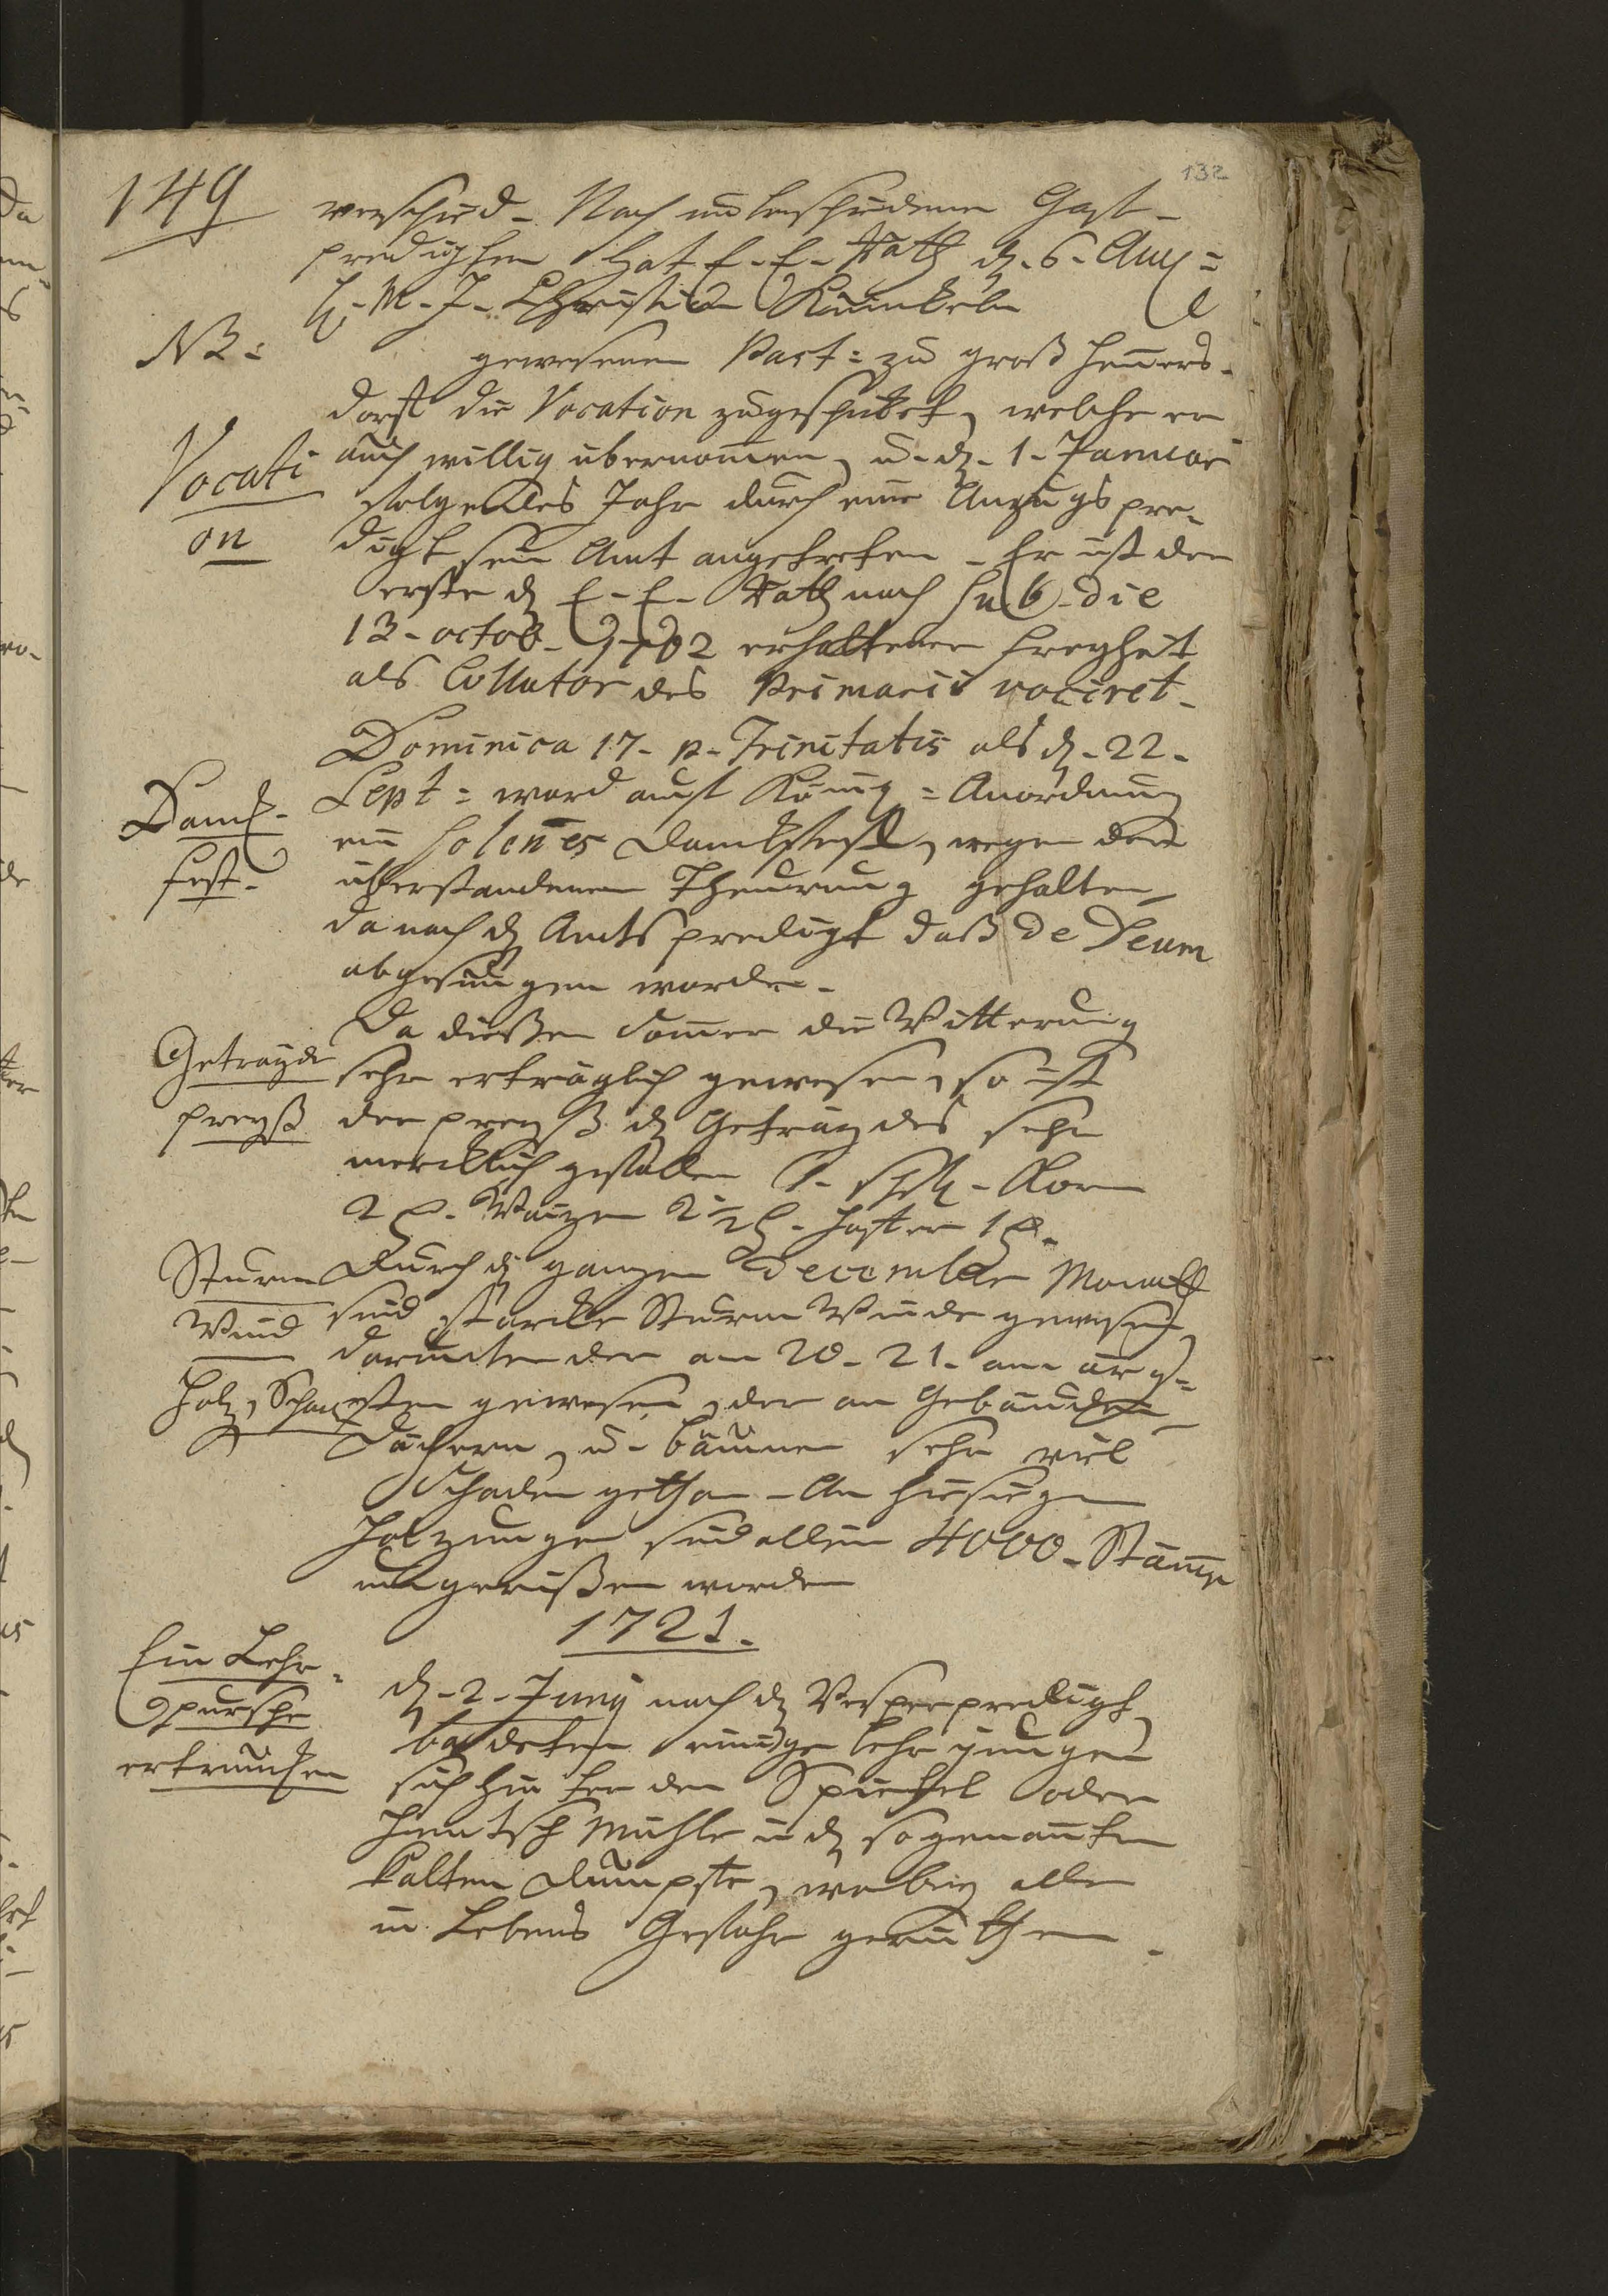 132
149
verschied. Nach unterschiedenen Gast-
predigten hat E. E. Rath d. 6. Aug:
H. M. J. Christian Künkeln
NB:
gewesenen Past: zu groß Henners-
dorff die Vocation zugeschicket, welche er
Vocati
on
auch willig übernommen, u. d. 1. Januar
folgendes Jahr durch eine Anzugs pre-
digt sein Amt angetreten. Er ist der
erste den E. E. Rath nach sub die
13. octob. 1702 erhaltener Freyheit
als Collator des Primarii vociret.
Dominica 17. p. Trinitatis als d. 22.
Danck-
fest.
Sept: ward auff König: Anordnung
ein solennes Danckfest, wegen der
überstandenen Theurung gehalten,
da nach der Amts predigt daß Te Deum
abgesungen worden.
Getrayde
preyß
Da diesen Sommer die Witterung
sehr erträglich gewesen, so ist
der preyß des Getraydes sehr
mercklich gefallen 1. Korn
2 Waizen 2 1/2 Haffer 1
Sturm
Wind
Durch den ganzen December Monath
sind starcke Sturm Winde gewesen,
darunter der am 20. 21. am ärg-
Holz Schade
sten gewesen, der an Gebäuden
Dächern, u. bäumen sehr viel
Schaden gethan. An hiesigen
Holzungen sind allein 4000. Stämme
umgerißen worden
1721.
Ein Lehr-
pursche
ertruncken
d. 2. Junij nach der Vesperpredigt
badeten einige Lehr jungen
sich hinter der Spittel oder
Mühle in der sogenannten
kalten Dümpffe, wobey alle
in Lebens Gefahr geriethen.